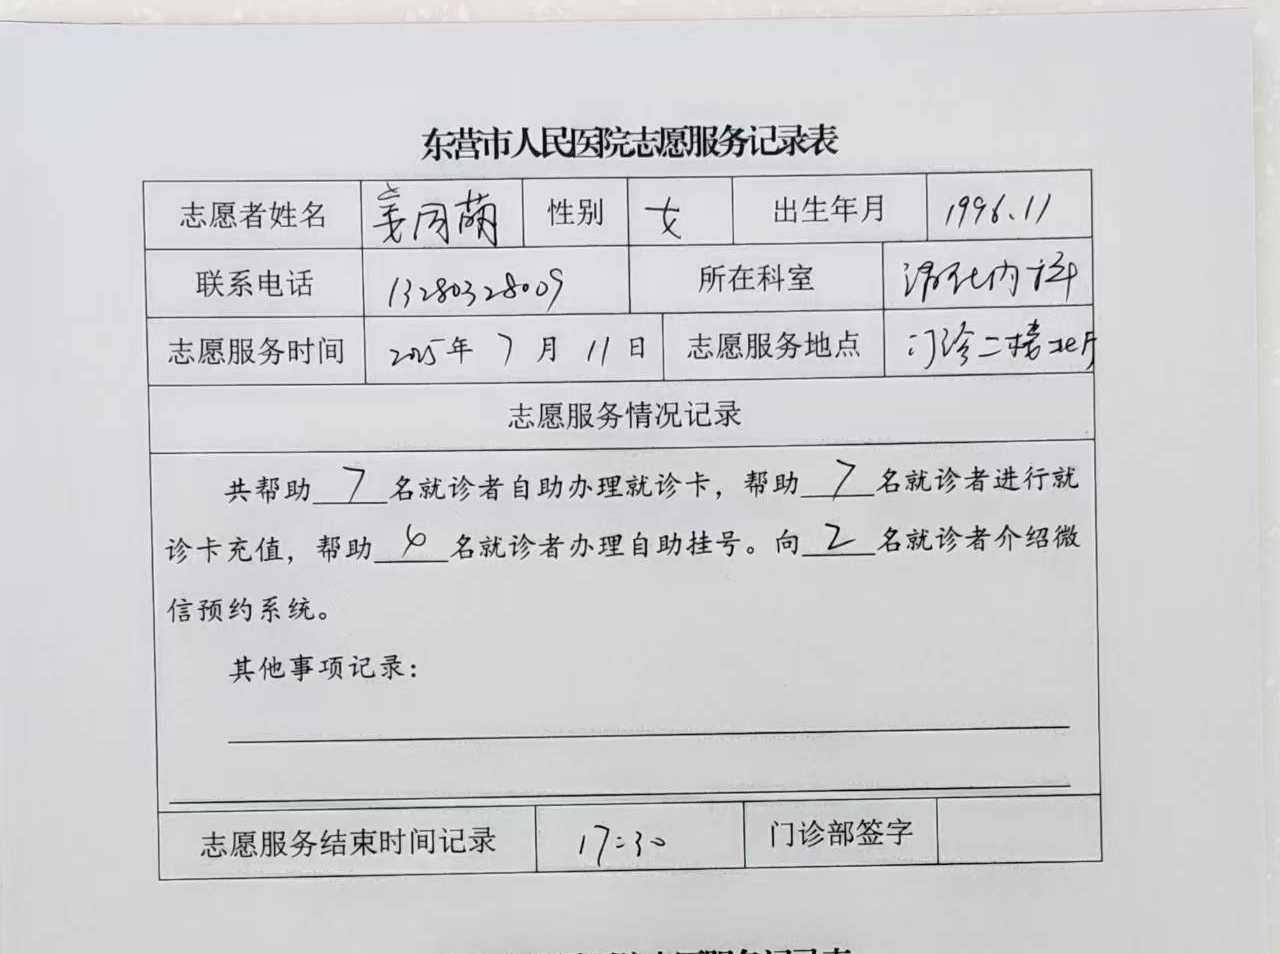 东营市人民医院志愿服务记录表
志愿者姓名 姜同萌 性别 女 出生年月 1996.11
联系电话 13280328009 所在科室 消化内科
志愿服务时间 2025年 7 月 11 日 志愿服务地点 门诊二楼北厅
志愿服务情况记录
共帮助 7 名就诊者自助办理就诊卡，帮助 7 名就诊者进行就
诊卡充值，帮助 名就诊者办理自助挂号。向 2 名就诊者介绍微
信预约系统。
其他事项记录：
志愿服务结束时间记录 17:30 门诊部签字